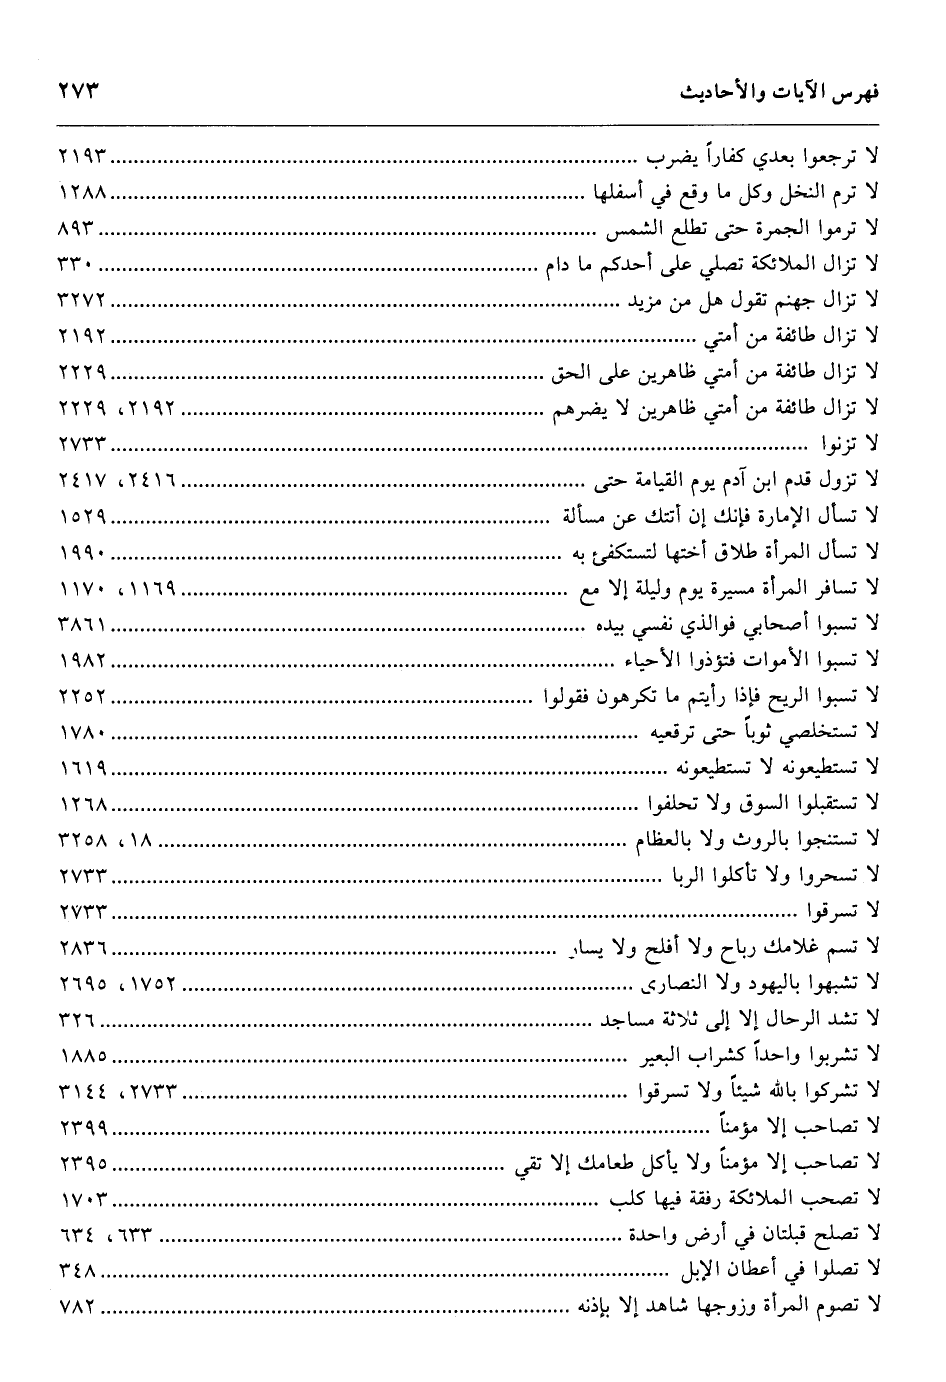 فهرس الآيات والأحاديث ٢٧٣
لا ترجعوا بعدي كفاراً يضرب ..... ٢١٩٣
لا ترم النخل وكل ما وقع في أسفلها ..... ١٢٨٨
لا ترموا الجمرة حتى تطلع الشمس ..... ٨٩٣
لا تزال الملائكة تصلي على أحدكم ما دام ..... ٣٣٠
لا تزال جهنم تقول هل من مزيد ..... ٣٢٧٢
لا تزال طائفة من أمتي ..... ٢١٩٢
لا تزال طائفة من أمتي ظاهرين على الحق ..... ٢٢٢٩
لا تزال طائفة من أمتي ظاهرين لا يضرهم ..... ٢١٩٢، ٢٢٢٩
لا تزنوا ..... ٢٧٣٣
لا تزول قدم ابن آدم يوم القيامة حتى ..... ٢٤١٦، ٢٤١٧
لا تسأل الإمارة فإنك إن أتتك عن مسألة ..... ١٥٢٩
لا تسأل المرأة طلاق أختها لتستكفئ به ..... ١٩٩٠
لا تسافر المرأة مسيرة يوم وليلة إلا مع ..... ١١٦٩، ١١٧٠
لا تسبوا أصحابي فوالذي نفسي بيده ..... ٣٨٦١
لا تسبوا الأموات فتؤذوا الأحياء ..... ١٩٨٢
لا تسبوا الريح فإذا رأيتم ما تكرهون فقولوا ..... ٢٢٥٢
لا تستخلصي ثوباً حتى ترقعيه ..... ١٧٨٠
لا تستطيعونه لا تستطيعونه ..... ١٦١٩
لا تستقبلوا السوق ولا تحلفوا ..... ١٢٦٨
لا تستنجوا بالروث ولا بالعظام ..... ١٨، ٣٢٥٨
لا تسحروا ولا تأكلوا الربا ..... ٢٧٣٣
لا تسرقوا ..... ٢٧٣٣
لا تسم غلامك رباح ولا أفلح ولا يسار ..... ٢٨٣٦
لا تشبهوا باليهود ولا النصارى ..... ١٧٥٢، ٢٦٩٥
لا تشد الرحال إلا إلى ثلاثة مساجد ..... ٣٢٦
لا تشربوا واحداً كشراب البعير ..... ١٨٨٥
لا تشركوا بالله شيئاً ولا تسرقوا ..... ٢٧٣٣، ٣١٤٤
لا تصاحب إلا مؤمناً ..... ٢٣٩٩
لا تصاحب إلا مؤمناً ولا يأكل طعامك إلا تقي ..... ٢٣٩٥
لا تصحب الملائكة رفقة فيها كلب ..... ١٧٠٣
لا تصلح قبلتان في أرض واحدة ..... ٦٣٣، ٦٣٤
لا تصلوا في أعطان الإبل ..... ٣٤٨
لا تصوم المرأة وزوجها شاهد إلا بإذنه ..... ٧٨٢